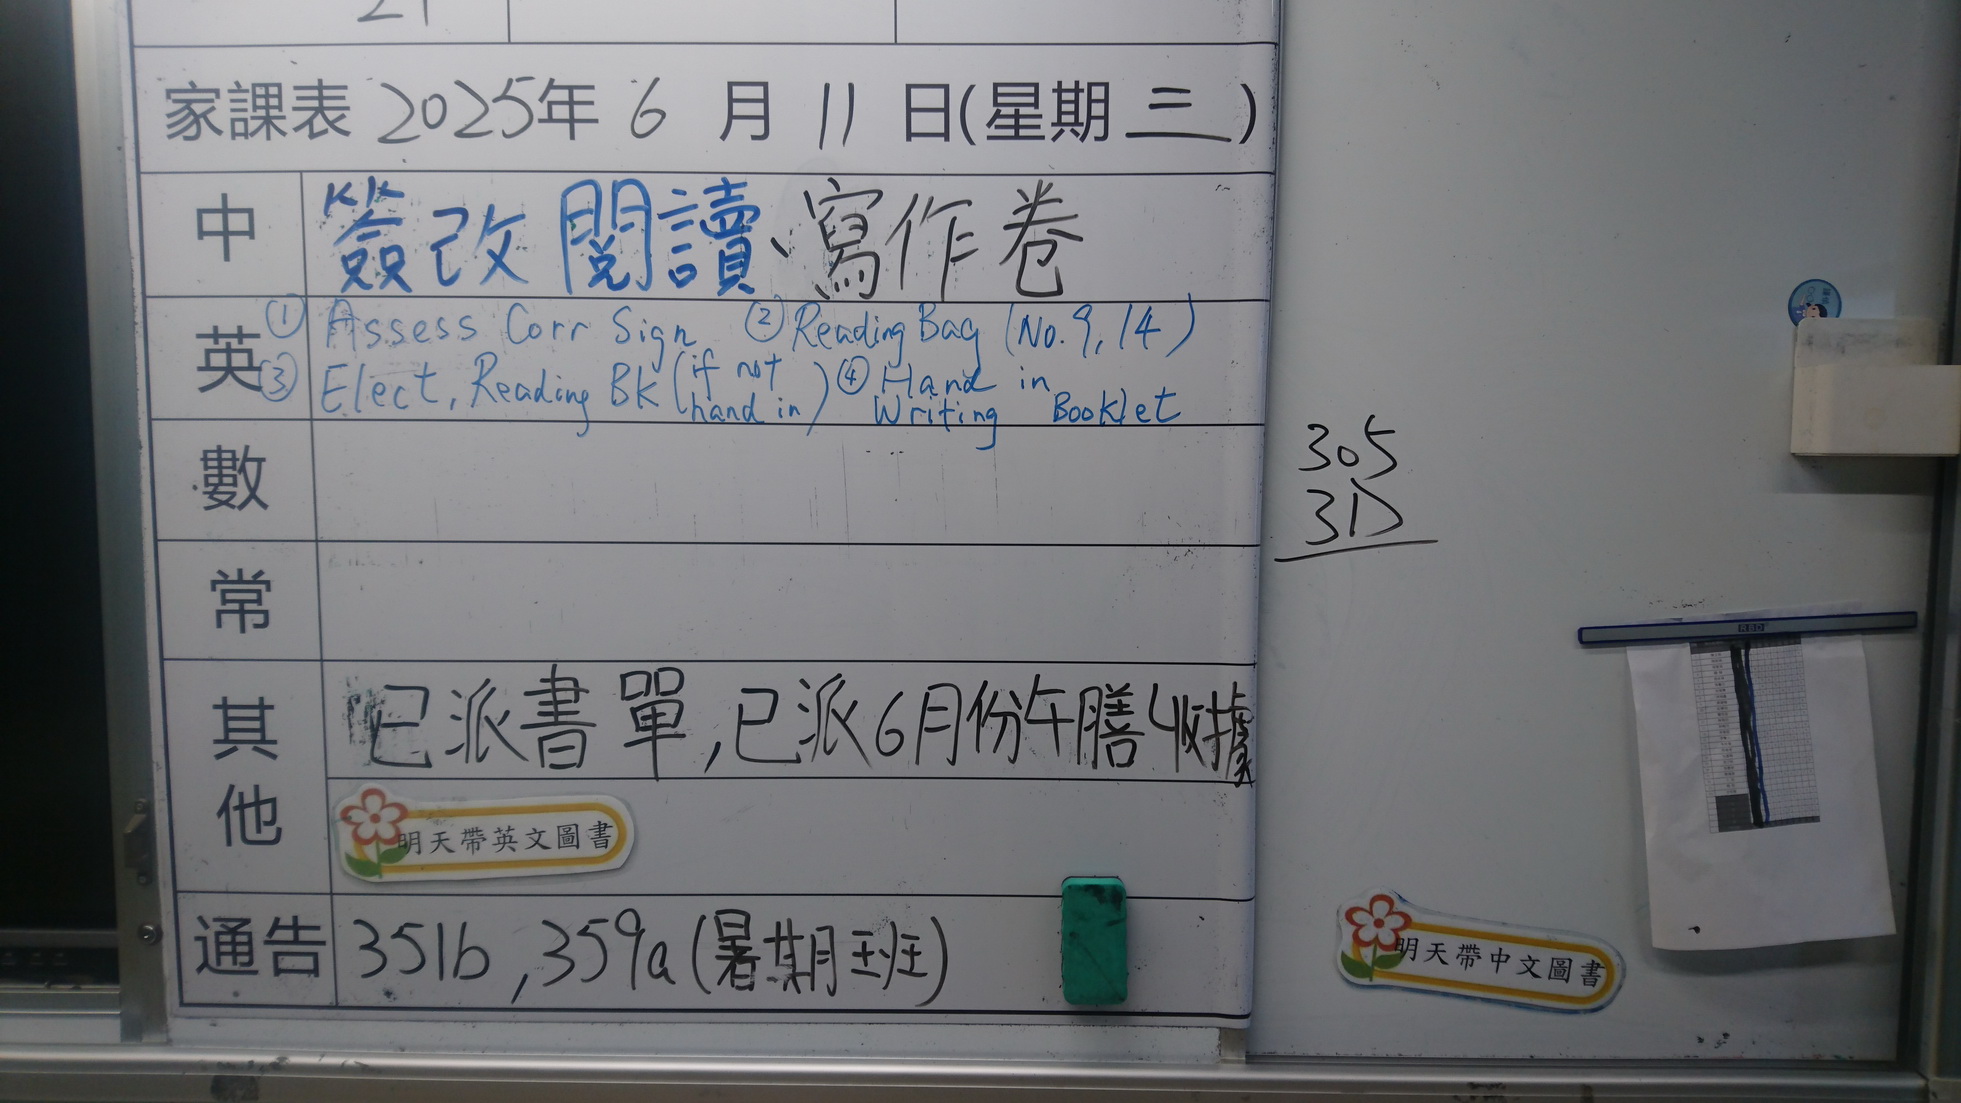 21
家課表 2025年 6 月 11 日(星期 三)
中 簽改閱讀、寫作卷
英 ① Assess Corr Sign ② Reading Bag (No. 9, 14)
③ Elect, Reading BK (if not hand in) ④ Hand in Writing Booklet
數
常
其他 已派書單,已派6月份午膳收據
明天帶英文圖書
通告 351b, 359a (暑期班)
305
3D
明天帶中文圖書